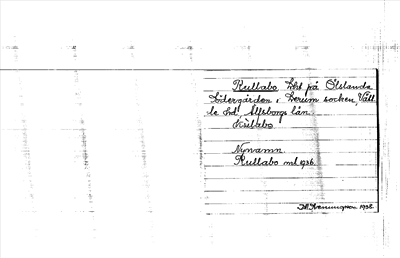 Rullabo, lht på Ölslanda
Södergården i Lerum socken, Vätt
le hd, Älfsborgs län.
Rullabo
Nynamn.
Rullabo ml 1926.
1938